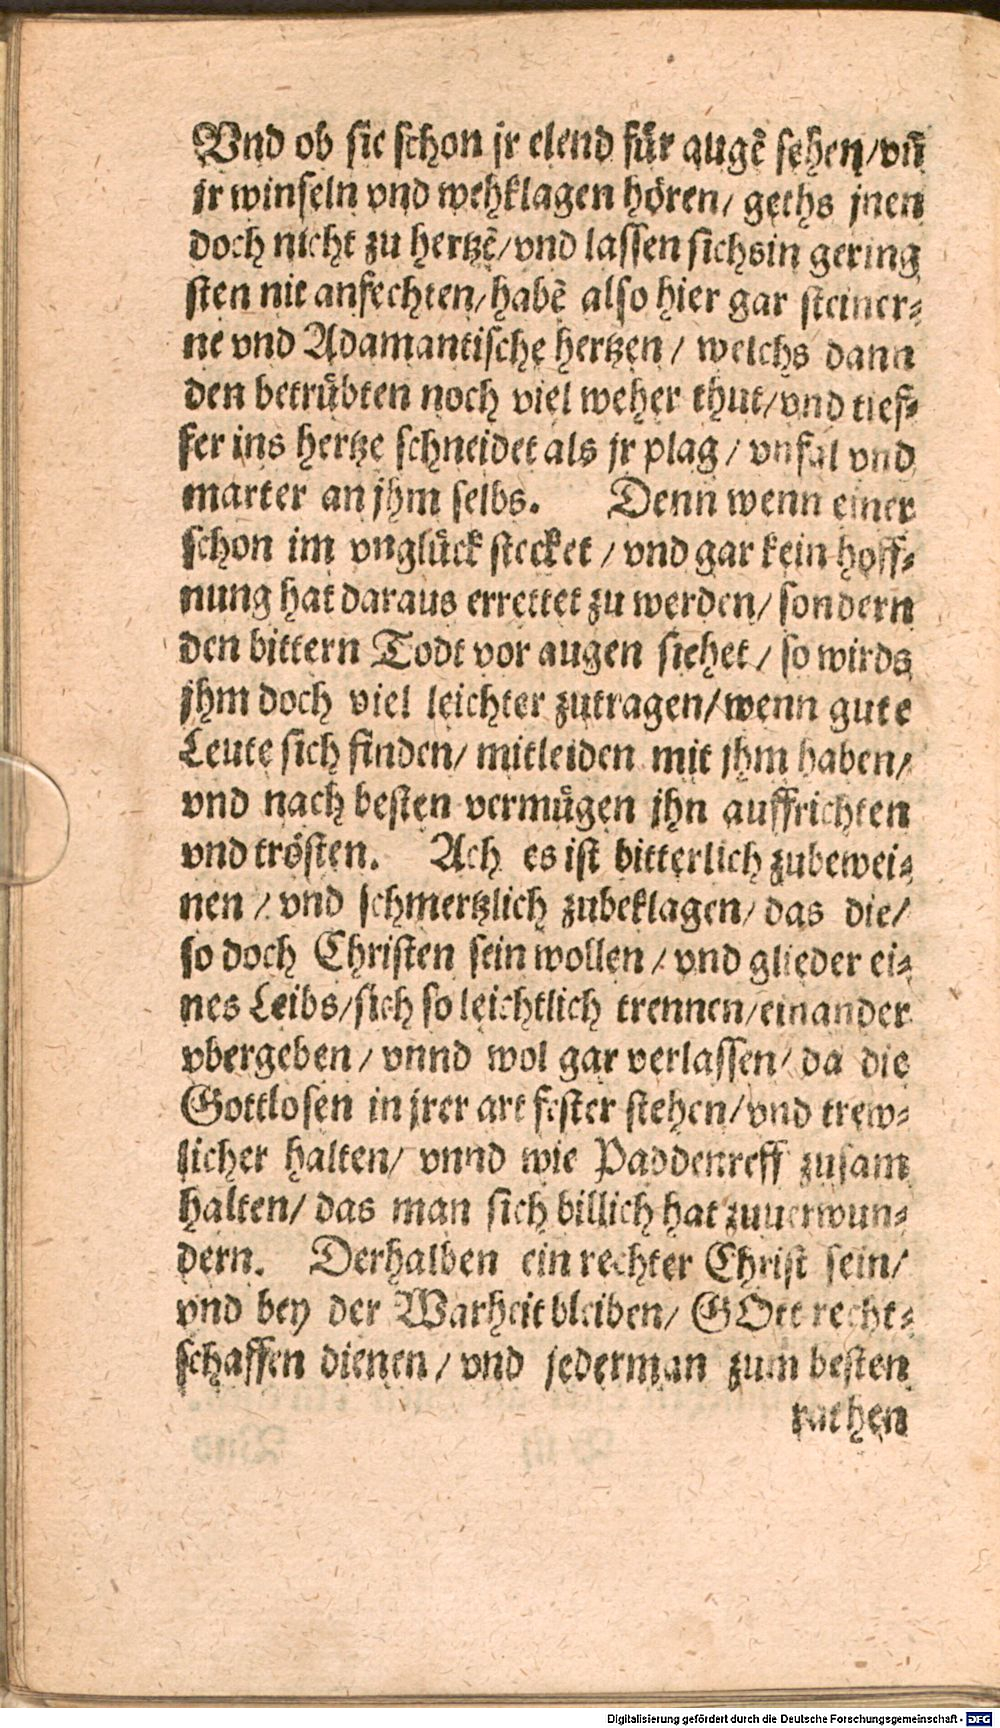 Vnd ob sie schon jr elend fůr augẽ sehen/vñ
jr winseln vnd wehklagen hören/ gehts jnen
doch nicht zu hertzẽ/vnd lassen sichs in gering
sten nit anfechten/habẽ also hier gar steiner⸗
ne vnd Adamantische hertzen/ welchs dann
den betrůbten noch viel weher thut/vnd tief⸗
fer ins hertze schneidet als jr plag/ vnfal vnd
marter an jhm selbs. Denn wenn einer
schon im vnglůck stecket/ vnd gar kein hoff⸗
nung hat daraus errettet zu werden/ sondern
den bittern Todt vor augen siehet/ so wirds
jhm doch viel leichter zutragen/wenn gute
Leute sich finden/ mitleiden mit jhm haben/
vnd nach besten vermůgen jhn auffrichten
vnd trösten. Ach es ist bitterlich zubewei⸗
nen/ vnd schmertzlich zubeklagen/ das die/
so doch Christen sein wollen/ vnd glieder ei⸗
nes Leibs/sich so leichtlich trennen/einander
vbergeben/ vnnd wol gar verlassen/ da die
Gottlosen in jrer art fester stehen/vnd trew⸗
licher halten/ vnnd wie Paddenreff zusam
halten/ das man sich billich hat zuuerwun⸗
dern. Derhalben ein rechter Christ sein/
vnd bey der Warheit bleiben/ GOtt recht⸗
schaffen dienen/ vnd jederman zum besten
rathen
Digitalisierung gefördert durch die Deutsche Forschungsgemeinschaft - DFG